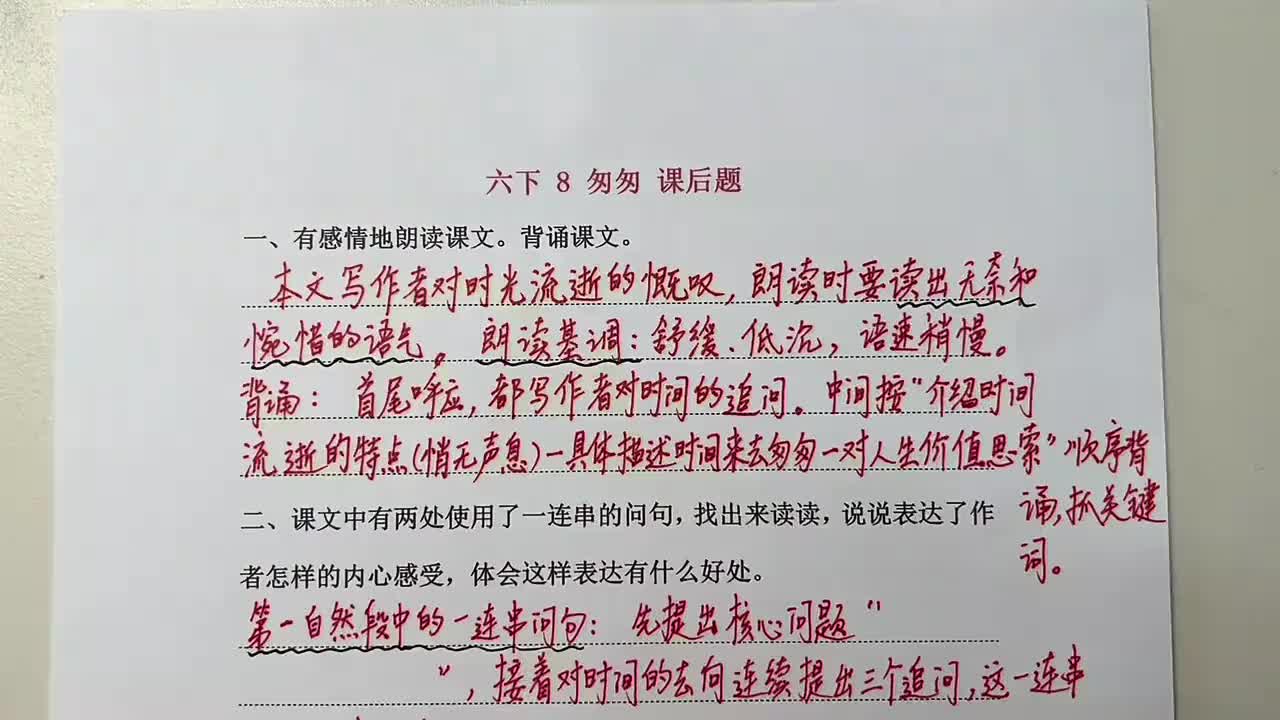 六下 8 匆匆 课后题
一、有感情地朗读课文。背诵课文。
本文写作者对时光流逝的慨叹，朗读时要读出无奈和
惋惜的语气。朗读基调：舒缓、低沉，语速稍慢。
背诵：首尾呼应，都写作者对时间的追问。中间按“介绍时间
流逝的特点(悄无声息)一具体描述时间来去匆匆一对人生价值思索”顺序背
诵，抓关键
词。
二、课文中有两处使用了一连串的问句，找出来读读，说说表达了作
者怎样的内心感受，体会这样表达有什么好处。
第一自然段中的一连串问句：先提出核心问题“
”，接着对时间的去向连续提出三个追问，这一连串